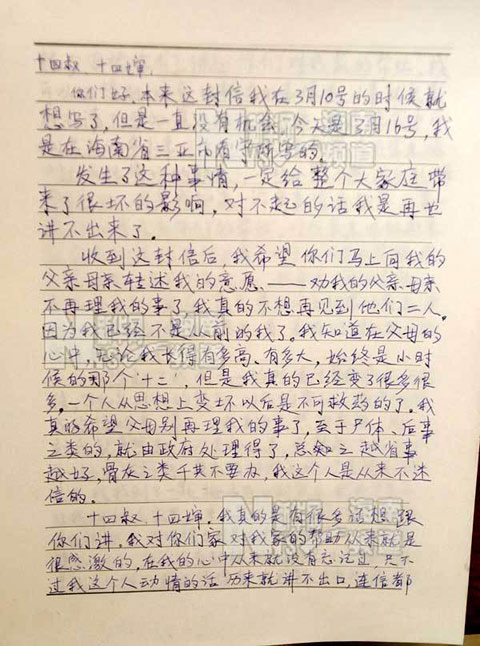 十四叔、十四婶,
你们好,本来这封信我在3月10号的时候就
想写了,但是一直没有机会,今天是3月16号,我
是在海南省三亚市看守所写的。
发生了这种事情,一定给整个大家庭带
来了很坏的影响,对不起的话我是再也
讲不出来了。
收到这封信后,我希望你们马上向我的
父亲母亲转述我的意愿,——劝我的父亲母亲
不再理我的事了,我真的不想再见到他们二人。
因为我已经不是从前的我了。我知道在父母的
心中,无论我长得有多高,有多大,始终是小时
候的那个"十二",但是我真的已经变了很多很
多,一个人从思想上变坏以后是不可救药的了。我
真的希望父母别再理我的事了,至于尸体、后事
之类的,就由政府处理得了,总知之越省事
越好,骨灰之类千其不要办,我这个人是从来不迷
信的。
十四叔、十四婶,我真的是有很多话想跟
你们讲,我对你们家对我家的帮助从来就是
很感激的,在我的心中从来就没有忘记过,只不
过我这个人动情的话历来就讲不出口,连信都